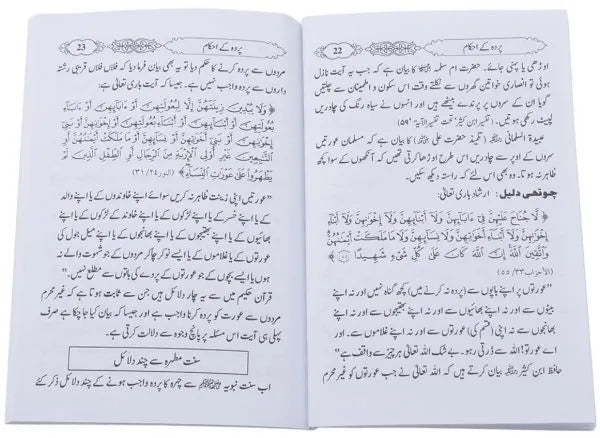 پردہ کے احکام
22
اوڑھی یا پہنی جائے۔ حضرت ام سلمہ رضی اللہ عنہا کا بیان ہے کہ جب یہ آیت نازل
ہوئی تو انصاری خواتین گھروں سے نکلتے وقت اس سکون و اطمینان سے چلتیں
گویا ان کے سروں پر پرندے بیٹھے ہیں اور انہوں نے سیاہ رنگ کی چادریں
لپیٹ رکھی ہوتیں۔ (تفسیر ابن کثیر تحت تفسیر الآیۃ ۵۹)
عبیدۃ السلمانی (تلمیذ حضرت علی) کا بیان ہے کہ مسلمان عورتیں
سروں کے اوپر سے چادریں اس طرح اوڑھا کرتی تھیں کہ آنکھوں کے سوا کچھ
ظاہر نہ ہوتا تھا۔ وہ بھی اس لئے کہ راستہ دیکھ سکیں۔
چوتھی دلیل: ارشاد باری تعالیٰ:
﴿ لَّا جُنَاحَ عَلَيْهِنَّ فِيٓ ءَابَآئِهِنَّ وَلَآ أَبْنَآئِهِنَّ وَلَآ إِخْوَٰنِهِنَّ وَلَآ أَبْنَآءِ
إِخْوَٰنِهِنَّ وَلَآ أَبْنَآءِ أَخَوَٰتِهِنَّ وَلَا نِسَآئِهِنَّ وَلَا مَا مَلَكَتْ أَيْمَٰنُهُنَّ
وَٱتَّقِينَ ٱللَّهَ إِنَّ ٱللَّهَ كَانَ عَلَىٰ كُلِّ شَىْءٍ شَهِيدًا ﴾
(الأحزاب ۳۳/۵۵)
”عورتوں پر اپنے باپوں سے (پردہ نہ کرنے میں) کچھ گناہ نہیں اور نہ اپنے
بیٹوں سے اور نہ اپنے بھائیوں سے اور نہ اپنے بھتیجوں سے اور نہ اپنے
بھانجوں سے نہ اپنی (قسم کی) عورتوں سے اور نہ اپنے غلاموں سے۔ اور
اے عورتو! اللہ سے ڈرتی رہو۔ بے شک اللہ تعالیٰ ہر چیز سے واقف ہے“
حافظ ابن کثیر بیان کرتے ہیں کہ اللہ تعالیٰ نے جب عورتوں کو غیر محرم
پردہ کے احکام
23
مردوں سے پردہ کرنے کا حکم دیا تو یہ بھی بیان فرما دیا کہ فلاں فلاں قریبی رشتہ
داروں سے پردہ واجب نہیں ہے۔ جیسا کہ آیت باری تعالیٰ ہے:
﴿ وَلَا يُبْدِينَ زِينَتَهُنَّ إِلَّا لِبُعُولَتِهِنَّ أَوْ ءَابَآئِهِنَّ أَوْ ءَابَآءِ
بُعُولَتِهِنَّ أَوْ أَبْنَآئِهِنَّ أَوْ أَبْنَآءِ بُعُولَتِهِنَّ أَوْ إِخْوَٰنِهِنَّ أَوْ بَنِيٓ
إِخْوَٰنِهِنَّ أَوْ بَنِيٓ أَخَوَٰتِهِنَّ أَوْ نِسَآئِهِنَّ أَوْ مَا مَلَكَتْ أَيْمَٰنُهُنَّ أَوِ
ٱلتَّٰبِعِينَ غَيْرِ أُو۟لِى ٱلْإِرْبَةِ مِنَ ٱلرِّجَالِ أَوِ ٱلطِّفْلِ ٱلَّذِينَ لَمْ
يَظْهَرُوا۟ عَلَىٰ عَوْرَٰتِ ٱلنِّسَآءِ ﴾ (النور ۲۴/۳۱)
”عورتیں اپنی زینت ظاہر نہ کریں سوائے اپنے خاوندوں کے یا اپنے والد
کے یا اپنے خسر کے یا اپنے لڑکوں کے یا اپنے خاوند کے لڑکوں کے یا اپنے
بھائیوں کے یا اپنے بھتیجوں کے یا اپنے بھانجوں کے یا اپنے میل جول کی
عورتوں کے یا اپنے غلاموں کے یا ایسے نوکر چاکر مردوں کے جو شہوت والے نہ
ہوں یا ایسے بچوں کے جو عورتوں کے پردے کی باتوں سے مطلع نہیں۔“
قرآن حکیم میں سے یہ چار دلائل ہیں جن سے ثابت ہوتا ہے کہ غیر محرم
مردوں سے عورت کو پردہ کرنا واجب ہے اور جیسا کہ بیان کیا جا چکا ہے صرف
پہلی ہی آیت اس مسئلہ پر پانچ وجوہ سے دلالت کرتی ہے۔
سنت مطہرہ سے چند دلائل
اب سنت نبویہ ﷺ سے چہرہ کا پردہ واجب ہونے کے چند دلائل ذکر کئے